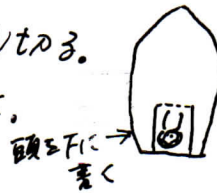 切る。
。
頭を下に
書く